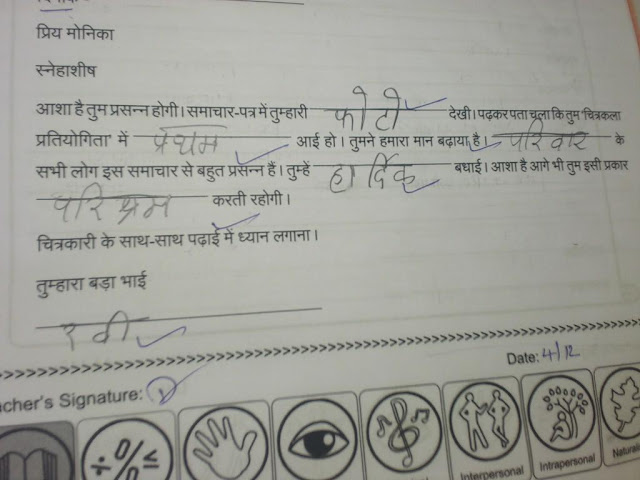 प्रिय मोनिका
स्नेहाशीष
आशा है तुम प्रसन्न होगी। समाचार-पत्र में तुम्हारी फोटो देखी। पढ़कर पता चला कि तुम 'चित्रकला
प्रतियोगिता' में प्रथम आई हो। तुमने हमारा मान बढ़ाया है। परिवार के
सभी लोग इस समाचार से बहुत प्रसन्न हैं। तुम्हें हार्दिक बधाई। आशा है आगे भी तुम इसी प्रकार
परिश्रम करती रहोगी।
चित्रकारी के साथ-साथ पढ़ाई में ध्यान लगाना।
तुम्हारा बड़ा भाई
रवी
Date: 4/12
acher's Signature:
Interpersonal Intrapersonal Natural